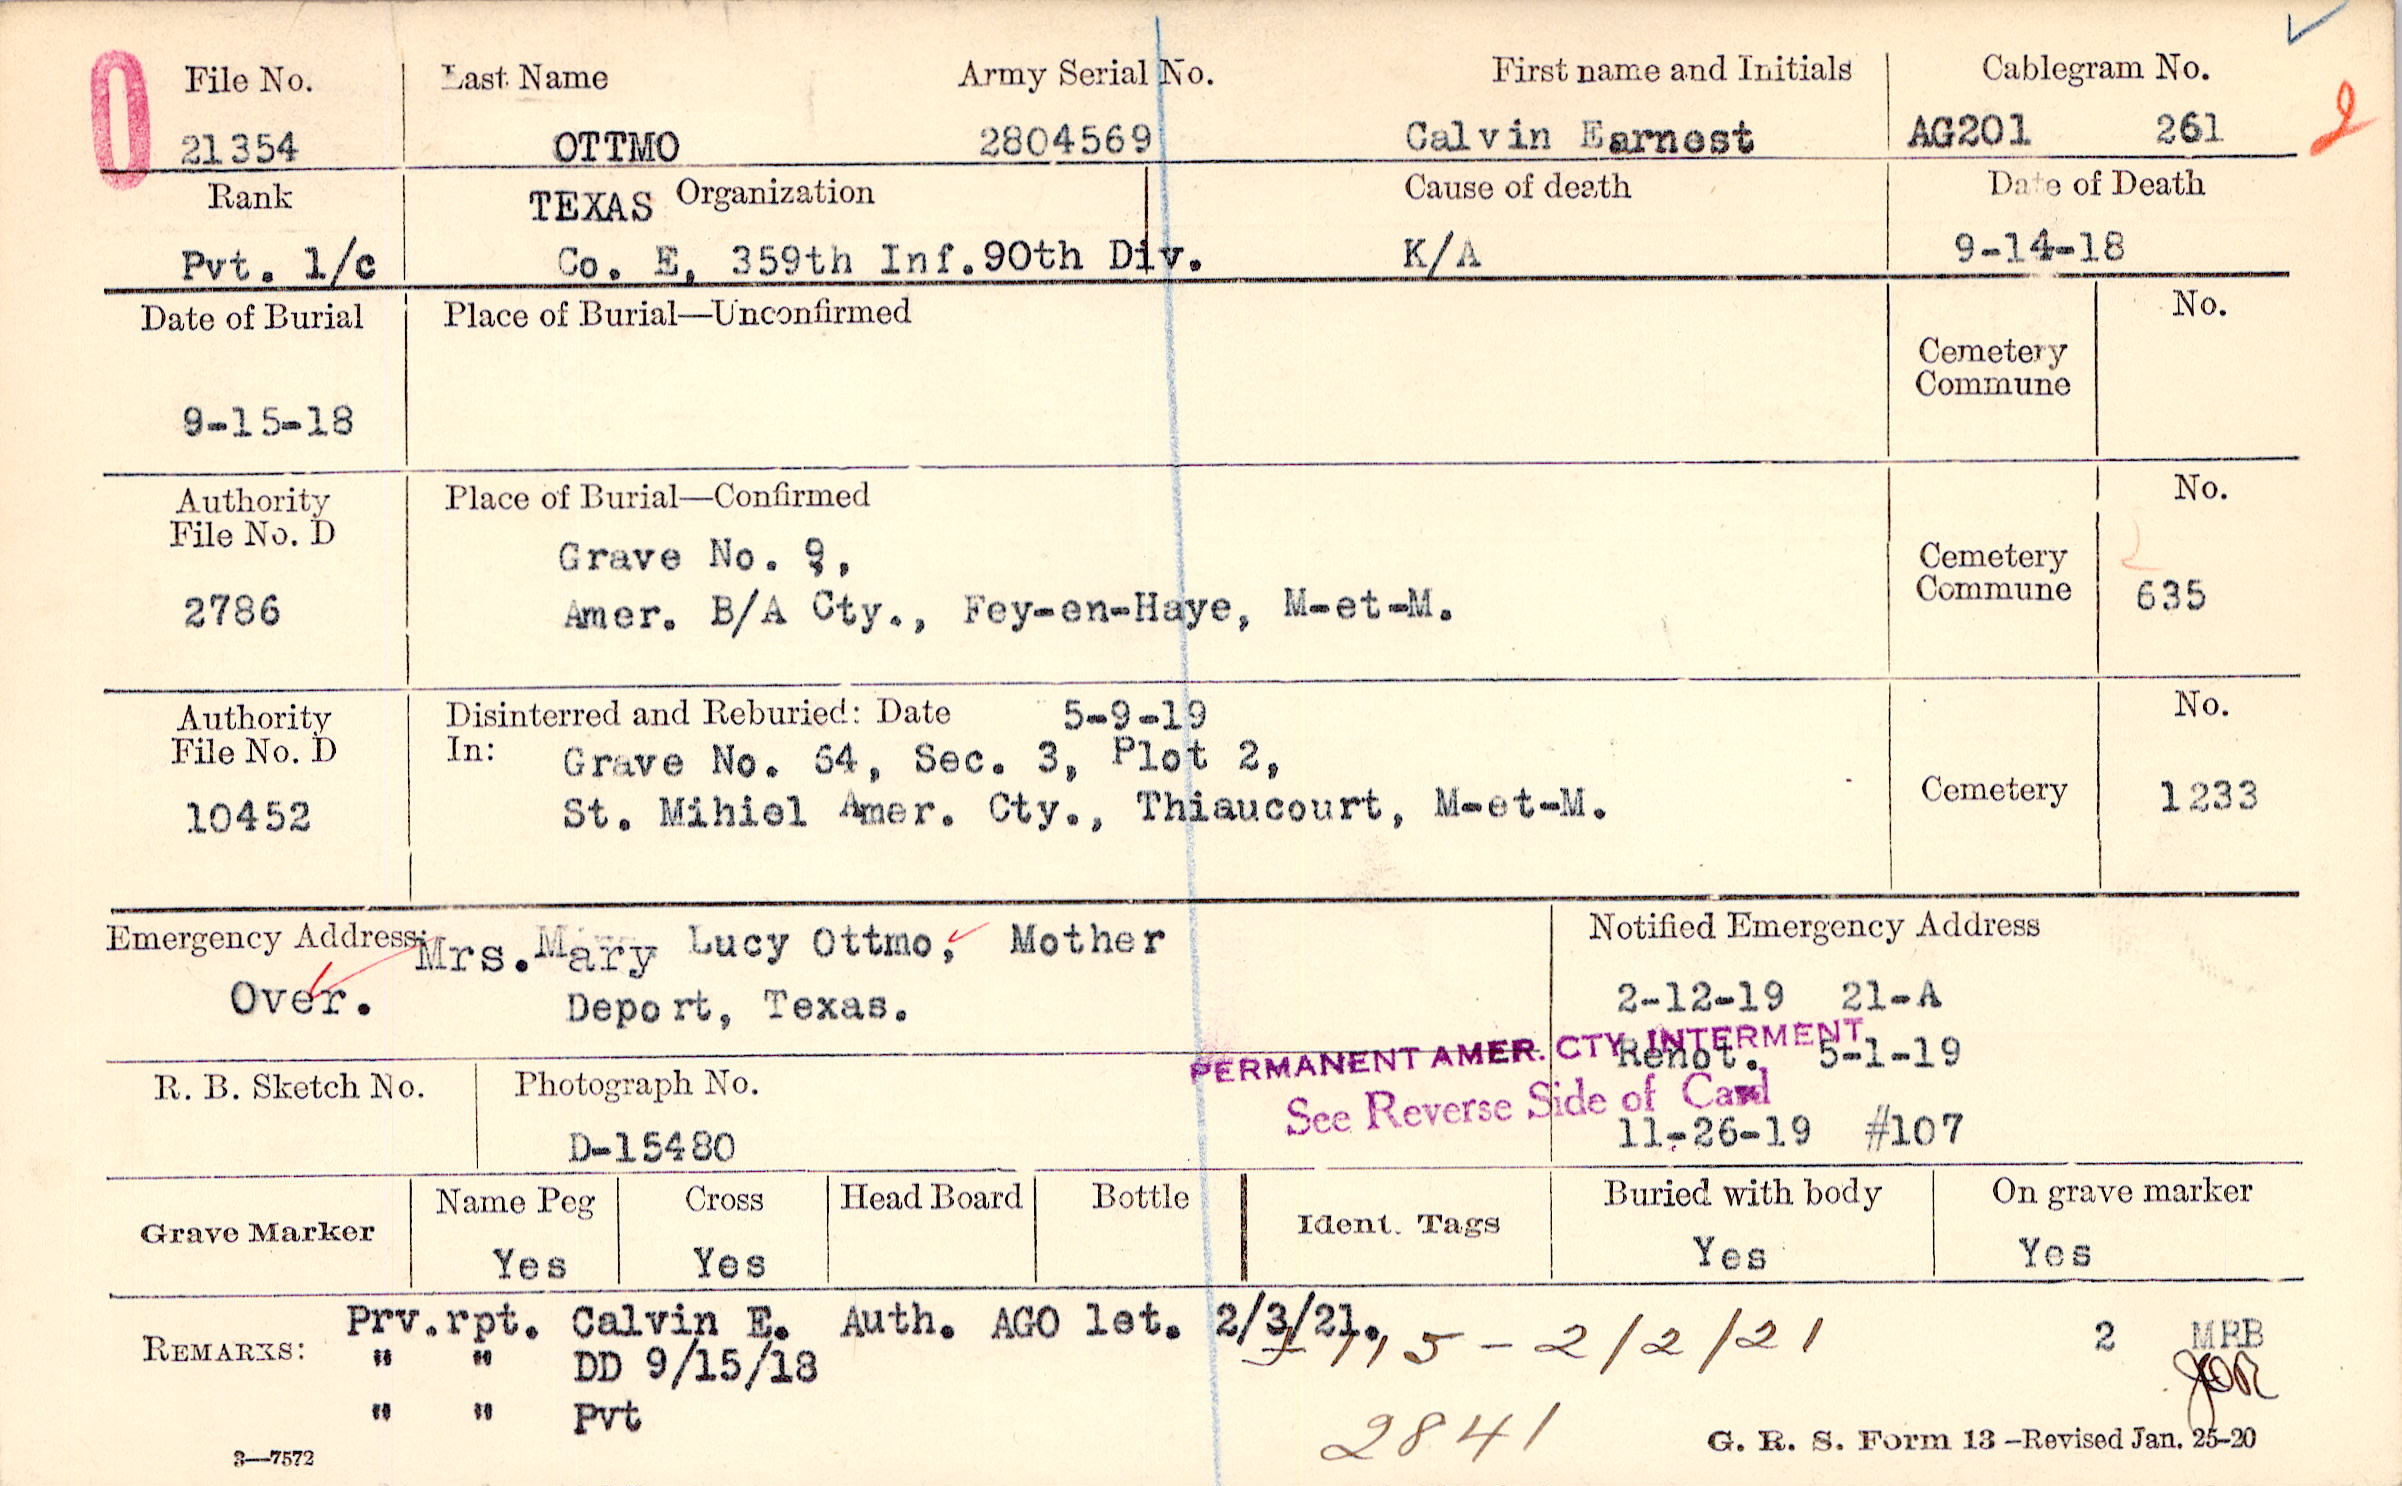 0
File No. Last Name Army Serial No. First name and Initials Cablegram No.
21354 OTTMO 2804569 Calvin Earnest AG201 261 2
Rank TEXAS Organization Cause of death Date of Death
Pvt. 1/c Co. E, 359th Inf.90th Div. K/A 9-14-18
Date of Burial Place of Burial—Unconfirmed No.
Cemetery
Commune
9-15-18
Authority Place of Burial—Confirmed No.
File No. D
Grave No. 9, Cemetery
2786 Amer. B/A Cty., Fey-en-Haye, M-et-M. Commune 635
Authority Disinterred and Reburied: Date 5-9-19 No.
File No. D In: Grave No. 64, Sec. 3, Plot 2,
10452 St. Mihiel Amer. Cty., Thiaucourt, M-et-M. Cemetery 1233
Emergency Address: Mrs. Mary Lucy Ottmo, Mother Notified Emergency Address
Over. Deport, Texas. 2-12-19 21-A
PERMANENT AMER. CTY. INTERMENT
Renot. 5-1-19
See Reverse Side of Card
R. B. Sketch No. Photograph No.
D-15480 11-26-19 #107
Grave Marker Name Peg Cross Head Board Bottle Ident. Tags Buried with body On grave marker
Yes Yes Yes Yes
REMARKS: Prv.rpt. Calvin E. Auth. AGO let. 2/3/21.
" " DD 9/15/18 5-2/2/21 2 MRB
" " Pvt
2841
3—7572 G. R. S. Form 13—Revised Jan. 25-20